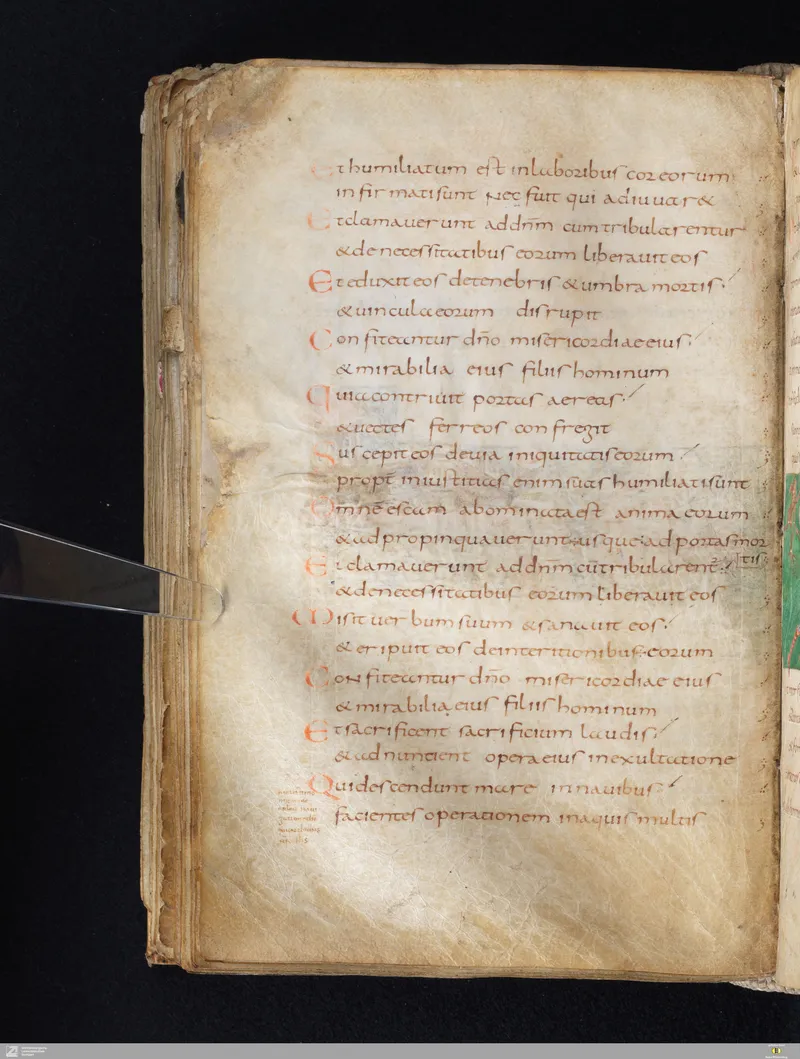 Et humiliatum est in laboribus cor eorum
infirmati sunt nec fuit qui adiuuar&
Et clamauerunt ad dn̄m cum tribularentur
& de necessitatibus eorum liberauit eos
Et eduxit eos de tenebris & umbra mortis
& uincula eorum disrupit
Confiteantur dn̄o misericordiae eius
& mirabilia eius filiis hominum
Quia contriuit portas aereas
& uectes ferreos confregit
Suscepit eos de uia iniquitatis eorum
propt̄ iniustitias enim suas humiliati sunt
Omnē escam abominata est anima eorum
& adpropinquauerunt usque ad portas mor
tis
Et clamauerunt ad dn̄m cū tribularent̄
& de necessitatibus eorum liberauit eos
Misit uerbum suum & sanauit eos
& eripuit eos de interitionibus eorum
Confiteantur dn̄o misericordiae eius
& mirabilia eius filiis hominum
Et sacrificent sacrificium laudis
& adnuncient opera eius in exultatione
Qui descendunt mare in nauibus
facientes operationem in aquis multis